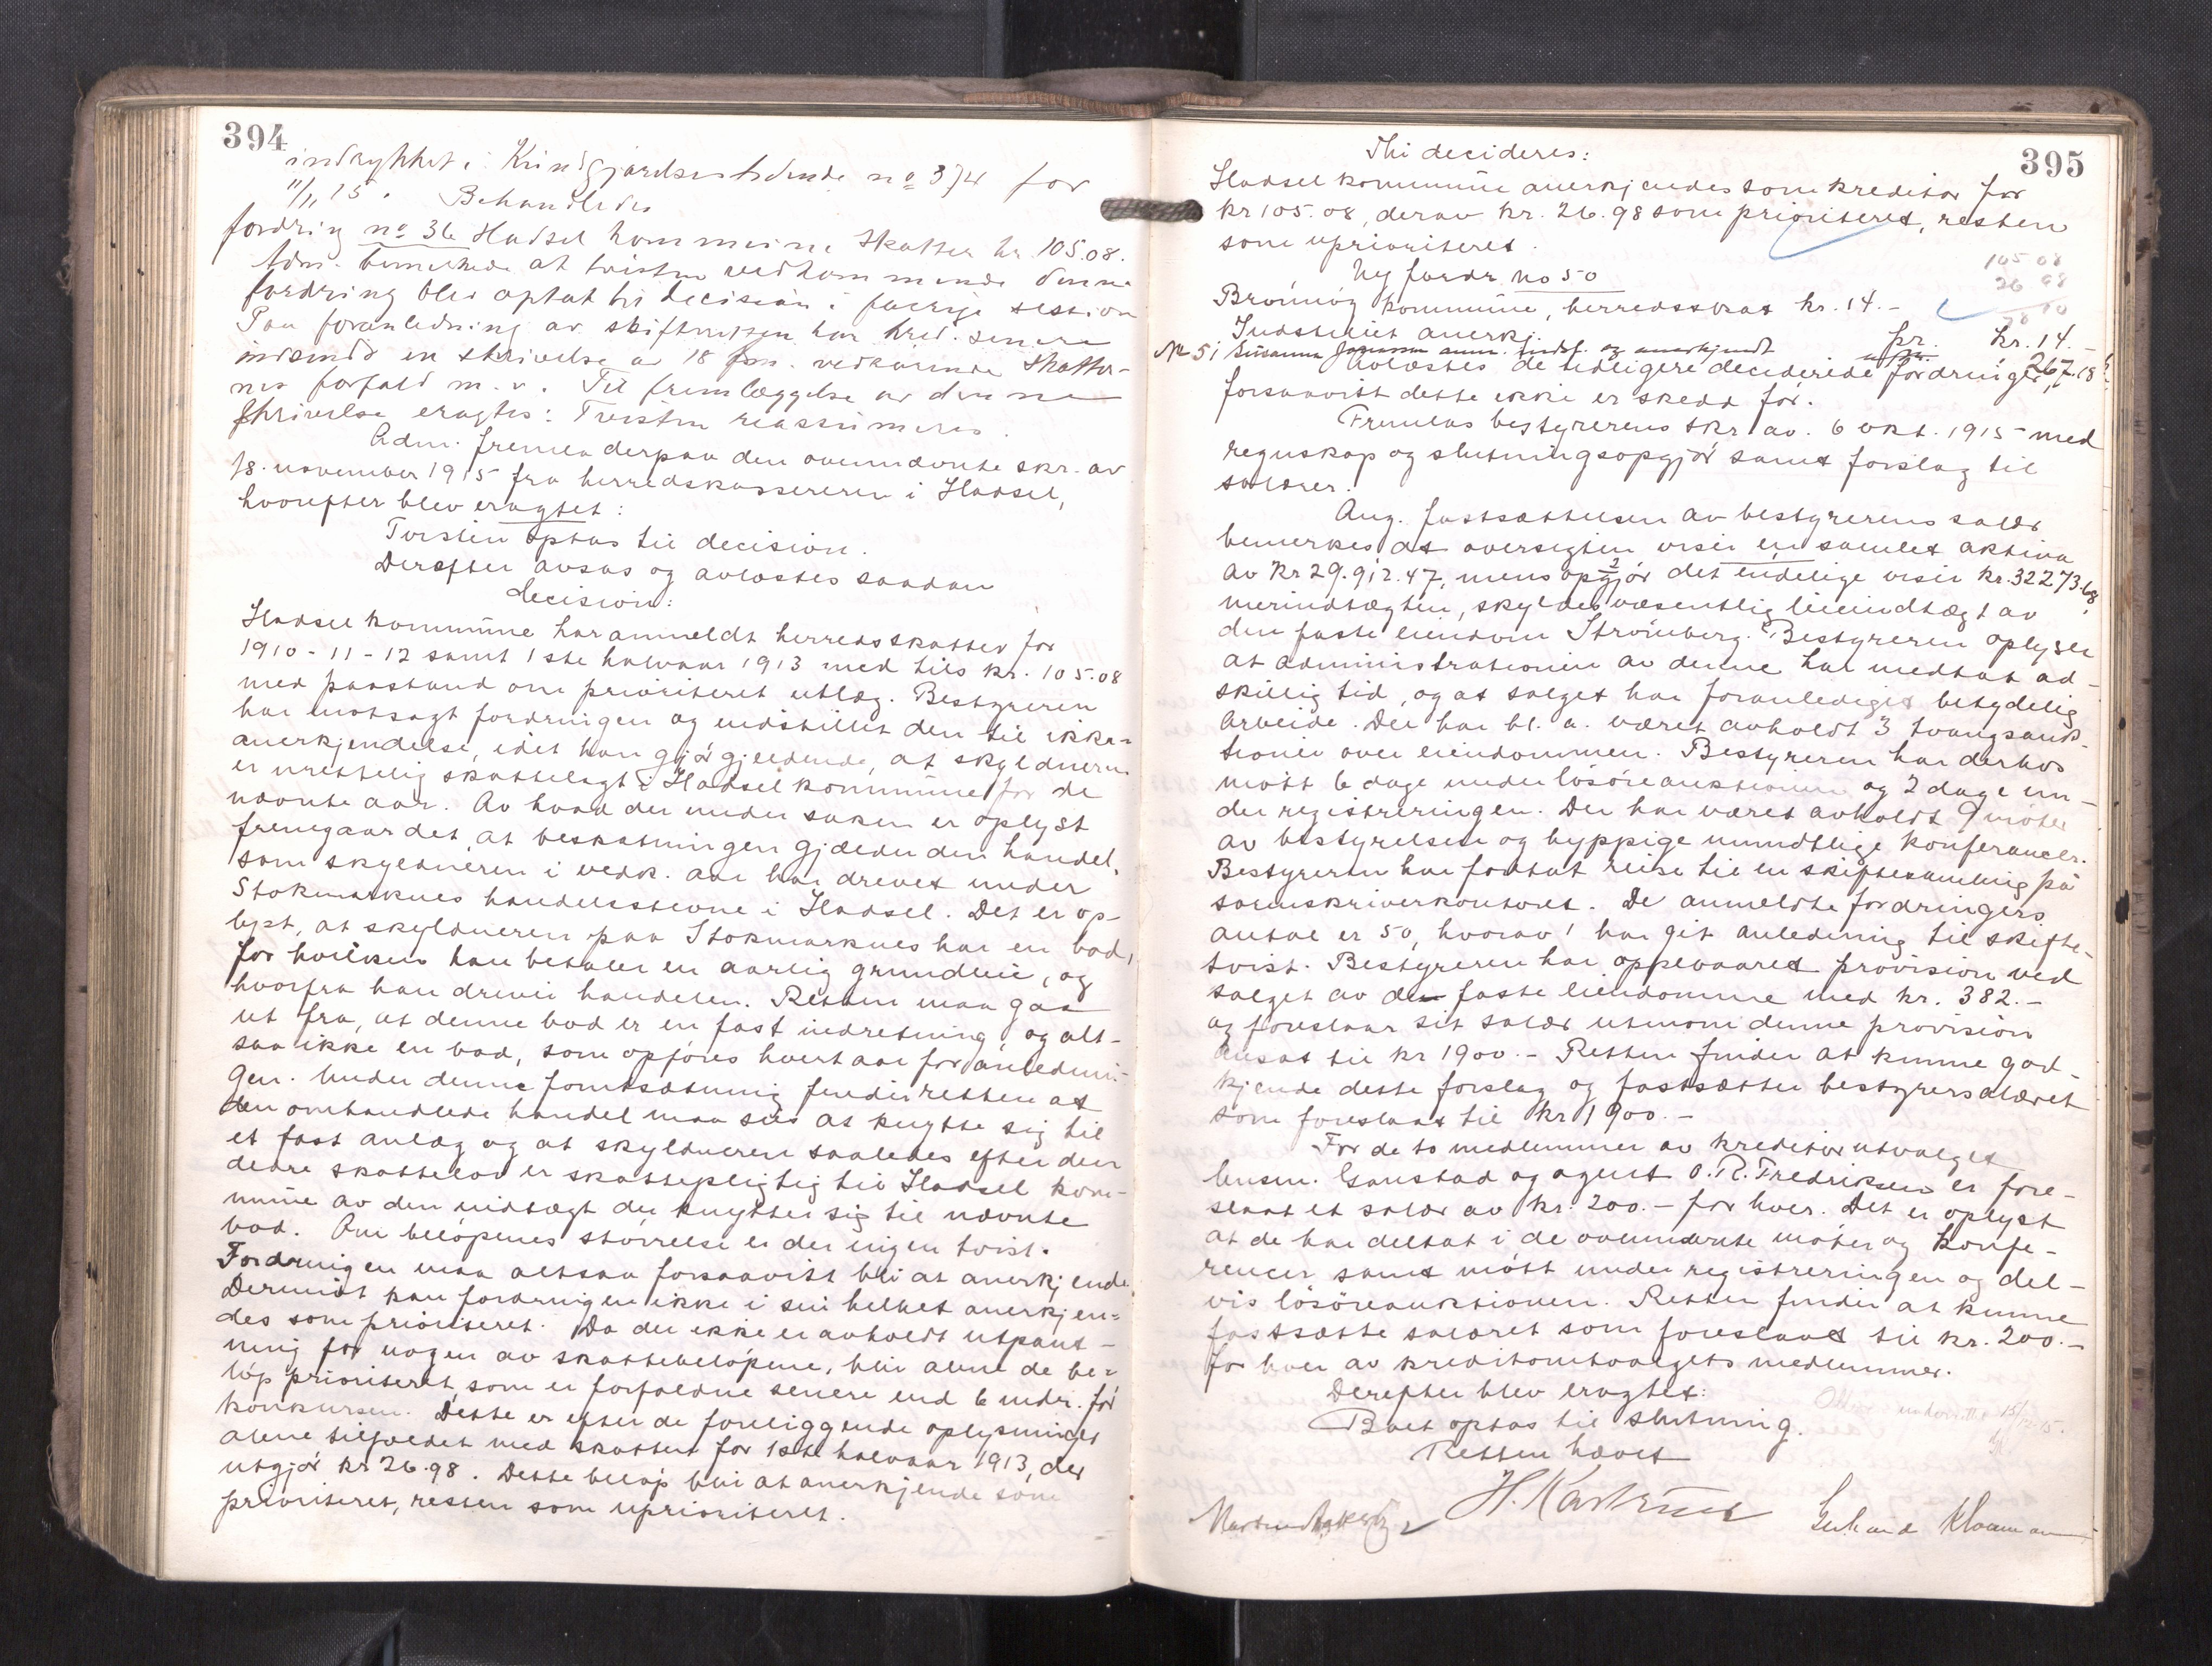 394
indrykket i Kundgjørelsestidende no 374 for
11/1, 15. Behandledes
fordring no 36 Hadsel kommune skatter kr. 105.08.
Adm. bemerkede at tvisten vedkommende denne
fordring blev optat til decision i forrige session
Paa foranledning av skifteretten har kred. senere
indsendt en skrivelse av 18 fm. vedkommende skatter-
nes forfald m. v. Til fremlæggelse av denne
skrivelse eragtes: Tvisten reassumeres.
Adm. fremla derpaa den ovennævnte skr. av
18. november 1915 fra herredskassereren i Hadsel,
hvorefter blev eragtet:
Tvisten optas til decision.
Derefter avsas og avlæstes saadan
decision:
Hadsel kommune har anmeldt herredsskatter for
1910-11-12 samt 1ste halvaar 1913 med tils kr. 105.08
med paastand om prioriteret utlæg. Bestyreren
har motsagt fordringen og indstillet den til ikke-
anerkjendelse, idet han gjør gjeldende, at skyldneren
er urettelig skattelagt i Hadsel kommune for de
nævnte aar. Av hvad der under saken er oplyst
fremgaar det, at beskatningen gjælder den handel,
som skyldneren i vedk. aar har drevet under
Stokmarknes handelsstevne i Hadsel. Det er op-
lyst, at skyldneren paa Stokmarknes har en bod,
for hvilken han betaler en aarlig grundleie, og
hvorfra han driver handelen. Retten maa gaa
ut fra, at denne bod er en fast indretning og alt-
saa ikke en bod, som opføres hvert aar for anlednin-
gen. Under denne forutsætning finder retten at
den omhandlede handel maa sies at knytte sig til
et fast anlæg og at skyldneren saaledes efter den
ældre skattelov er skattepligtig til Hadsel kom-
mune av den indtægt der knytter sig til nævnte
bod. Om beløpenes størrelse er der ingen tvist.
Fordringen maa altsaa forsaavidt bli at anerkjende.
Derimot kan fordringen ikke i sin helhet anerkjen-
des som prioriteret. Da der ikke er avholdt utpant-
ning for nogen av skattebeløpene, blir alene de be-
løp prioriteret, som er forfaldne senere end 6 mdr. før
konkursen. Dette er efter de foreliggende oplysninger
alene tilfældet med skatten for 1ste halvaar 1913, der
utgjør kr 26.98. Dette beløp blir at anerkjende som
prioriteret, resten som uprioriteret.
395
Thi decideres:
Hadsel kommune anerkjendes som kreditor for
kr 105.08, derav kr. 26.98 som prioriteret, resten
som uprioriteret.
105 08
26 98
78 10
Ny fordr. no 50
Brønnøy kommune, herredsskat kr. 14.-
Indstillet anerkj. pr. kr. 14.-
No 51 Susanna Johansen anm. indst. og anerkjendt upr. 267.18
Avlæstes de tidligere deciderede fordringer,
forsaavidt dette ikke er skedd før.
Fremlas bestyrerens skr. av. 6 okt. 1915 med
regnskap og slutningsopgjør samt forslag til
salærer.
Ang. fastsættelsen av bestyrerens salær
bemerkes at oversigten viser en samlet aktiva
av kr 29.912.47, mens opgjør det endelige viser kr. 32273.68,
merindtægten, skyldes væsentlig leieindtægt av
den faste eiendom Strømberg. Bestyreren oplyser
at administrationen av denne har medtat ad-
skillig tid, og at salget har foranlediget betydelig
arbeide. Der har bl. a. været avholdt 3 tvangsauk-
tioner over eiendommen. Bestyreren har derhos
møtt 6 dage under løsøreauktionen og 2 dage un-
der registreringen. Der har været avholdt 9 møter
av bestyrelsen og hyppige mundtlige konferancer.
Bestyreren har foretat reise til en skiftesamling på
sorenskriverkontoret. De anmeldte fordringers
antal er 50, hvorav 1 har git anledning til skifte-
tvist. Bestyreren har oppebaaret provision ved
salget av den faste eiendomme med kr. 382.-
og foreslaar sit salær utenom denne provision
ansat til kr 1900.- Retten finder at kunne god-
kjende dette forslag og fastsætter bestyrersalæret
som foreslaat til kr 1900.-
For de to medlemmer av kreditorutvalget
lensm. Gaustad og agent O. R. Fredriksen er fore-
slaat et salær av kr. 200.- for hver. Det er oplyst
at de har deltat i de ovennævnte møter og konfe-
rencer samt møtt under registreringen og del-
vis løsøreauktionen. Retten finder at kunne
fastsætte salæret som foreslaat til kr. 200.-
for hver av kreditorutvalgets medlemmer.
Derefter blev eragtet:
Boet optas til slutning.
Retten hævet
15/12 15.
H. Kastrud